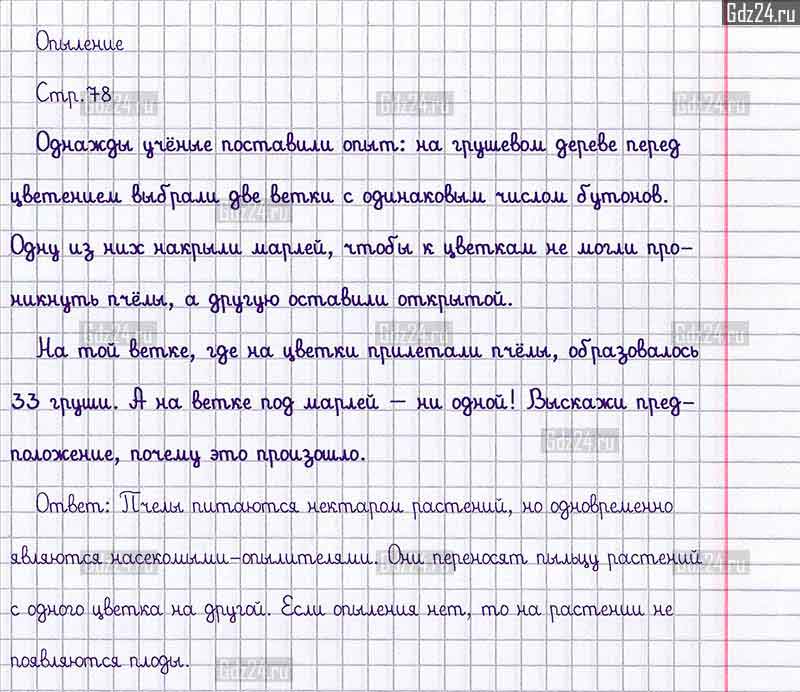 Gdz24.ru
Опыление
Стр.78
Однажды учёные поставили опыт: на грушевом дереве перед
цветением выбрали две ветки с одинаковым числом бутонов.
Одну из них накрыли марлей, чтобы к цветкам не могли про-
никнуть пчёлы, а другую оставили открытой.
На той ветке, где на цветки прилетали пчёлы, образовалось
33 груши. А на ветке под марлей – ни одной! Выскажи пред-
положение, почему это произошло.
Ответ: Пчелы питаются нектаром растений, но одновременно
являются насекомыми-опылителями. Они переносят пыльцу растений
с одного цветка на другой. Если опыления нет, то на растении не
появляются плоды.